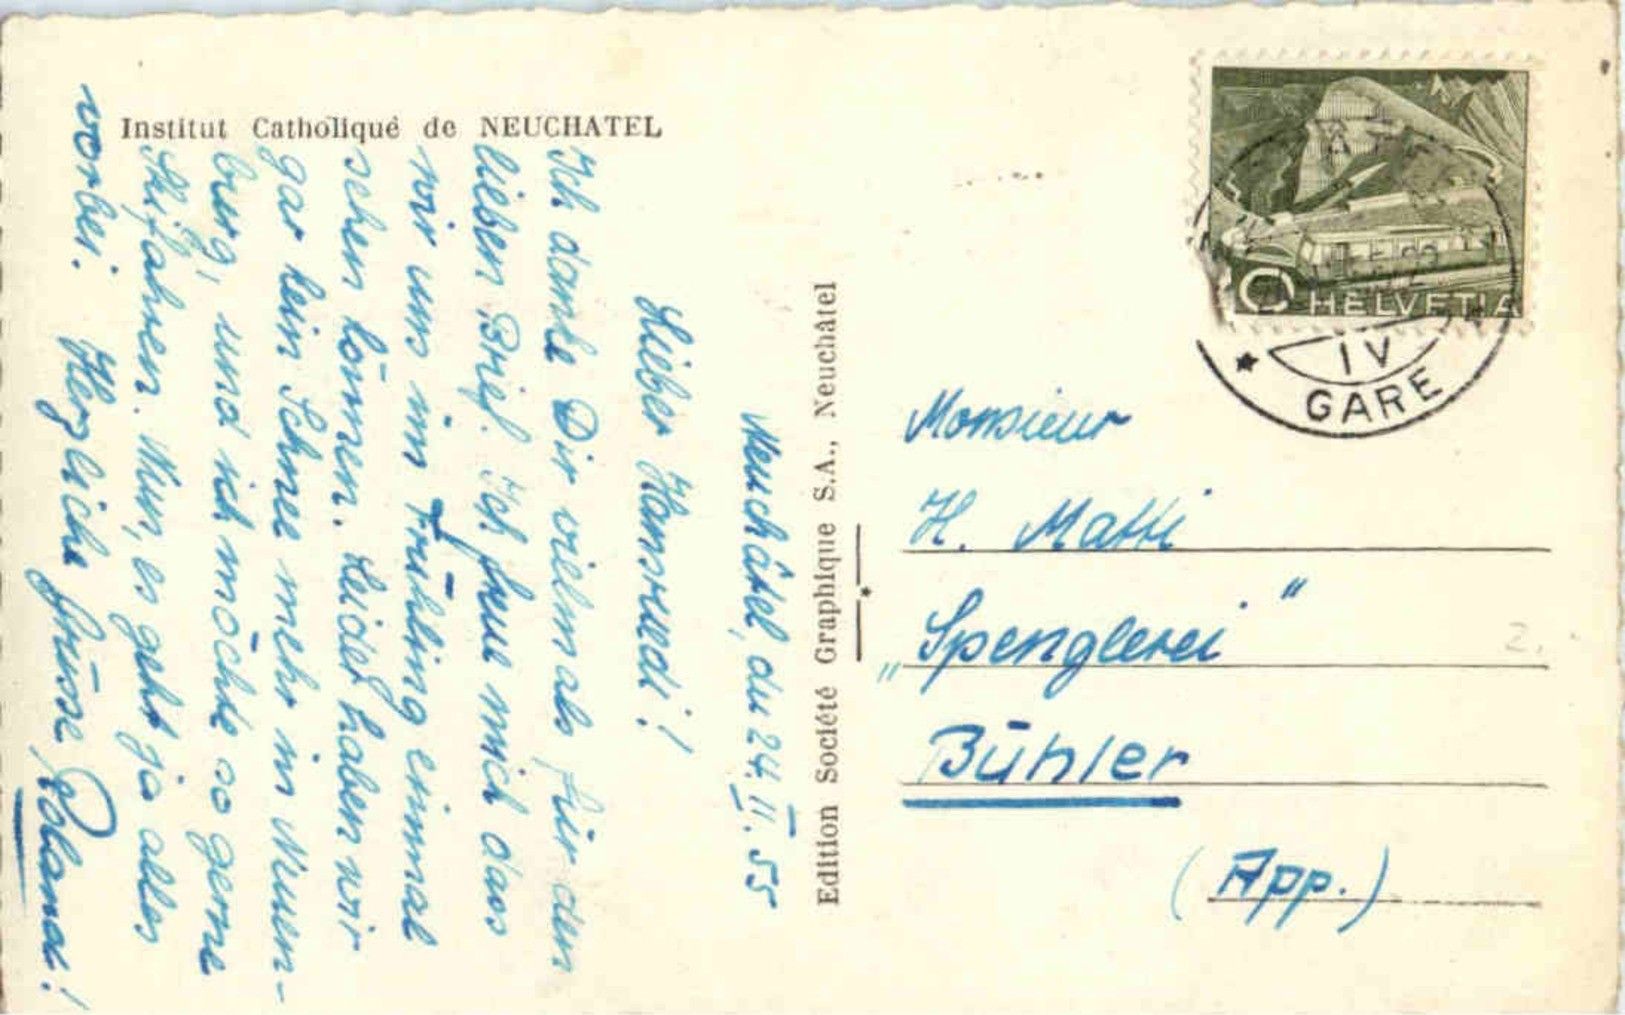 Institut Catholique de NEUCHATEL
Neuchâtel, du 24. II. 55
Lieber Hansruedi!
Ich danke Dir vielmals für den
lieben Brief. Ich freue mich dass
wir uns im Frühling einmal
sehen können. Leider haben wir
gar kein Schnee mehr in Neuen-
burg, und ich möchte so gerne
Skifahren. Nun, es geht ja alles
vorbei. Herzliche Grüsse, Roland!
Edition Société Graphique S.A., Neuchâtel
HELVETIA
IV
GARE
Monsieur
H. Matti
„Spenglerei"
Bühler
(App.)
2.